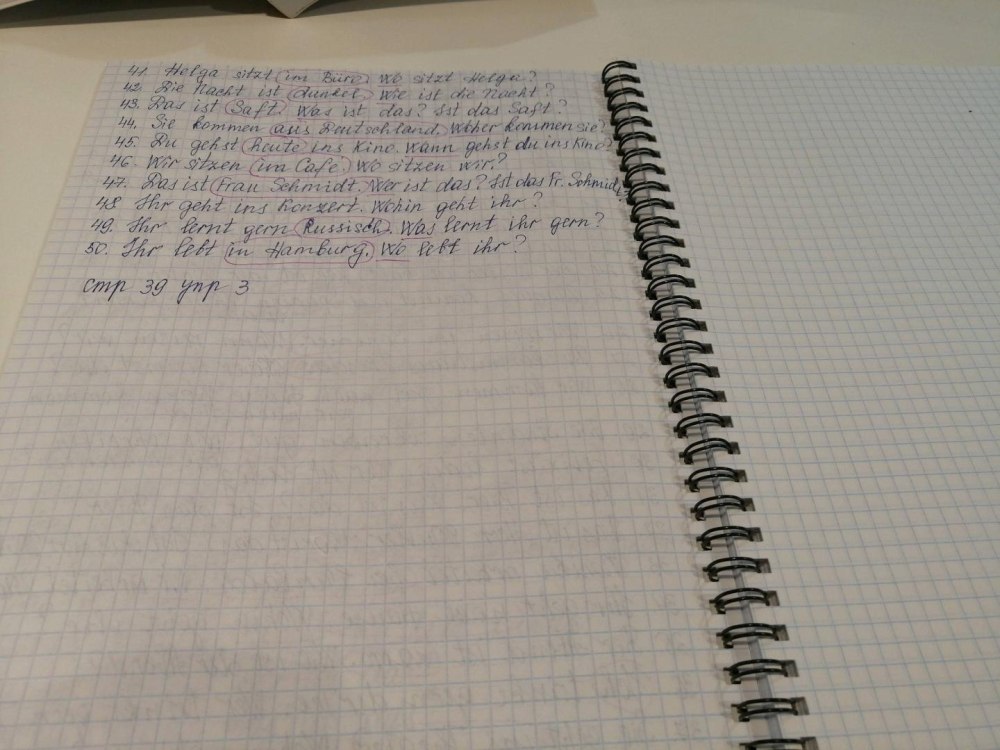 41. Helga sitzt im Büro. Wo sitzt Helga?
42. Die Nacht ist dunkel. Wie ist die Nacht?
43. Das ist Saft. Was ist das? Ist das Saft?
44. Sie kommen aus Deutschland. Woher kommen sie?
45. Du gehst heute ins Kino. Wann gehst du ins Kino?
46. Wir sitzen im Cafe. Wo sitzen wir?
47. Das ist Frau Schmidt. Wer ist das? Ist das Fr. Schmidt?
48. Ihr geht ins Konzert. Wohin geht ihr?
49. Ihr lernt gern Russisch. Was lernt ihr gern?
50. Ihr lebt in Hamburg. Wo lebt ihr?
стр 39 упр 3